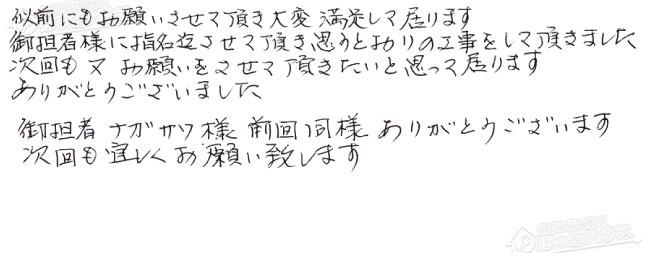 似前にもお願いさせて頂き大変満足して居ります
御担者様に指名迄させて頂き思うとおりの工事をして頂きました
次回も又お願いをさせて頂きたいと思って居ります
ありがとうございました
御担者 ナガサワ様 前回同様 ありがとうございます
次回も宜しくお願い致します